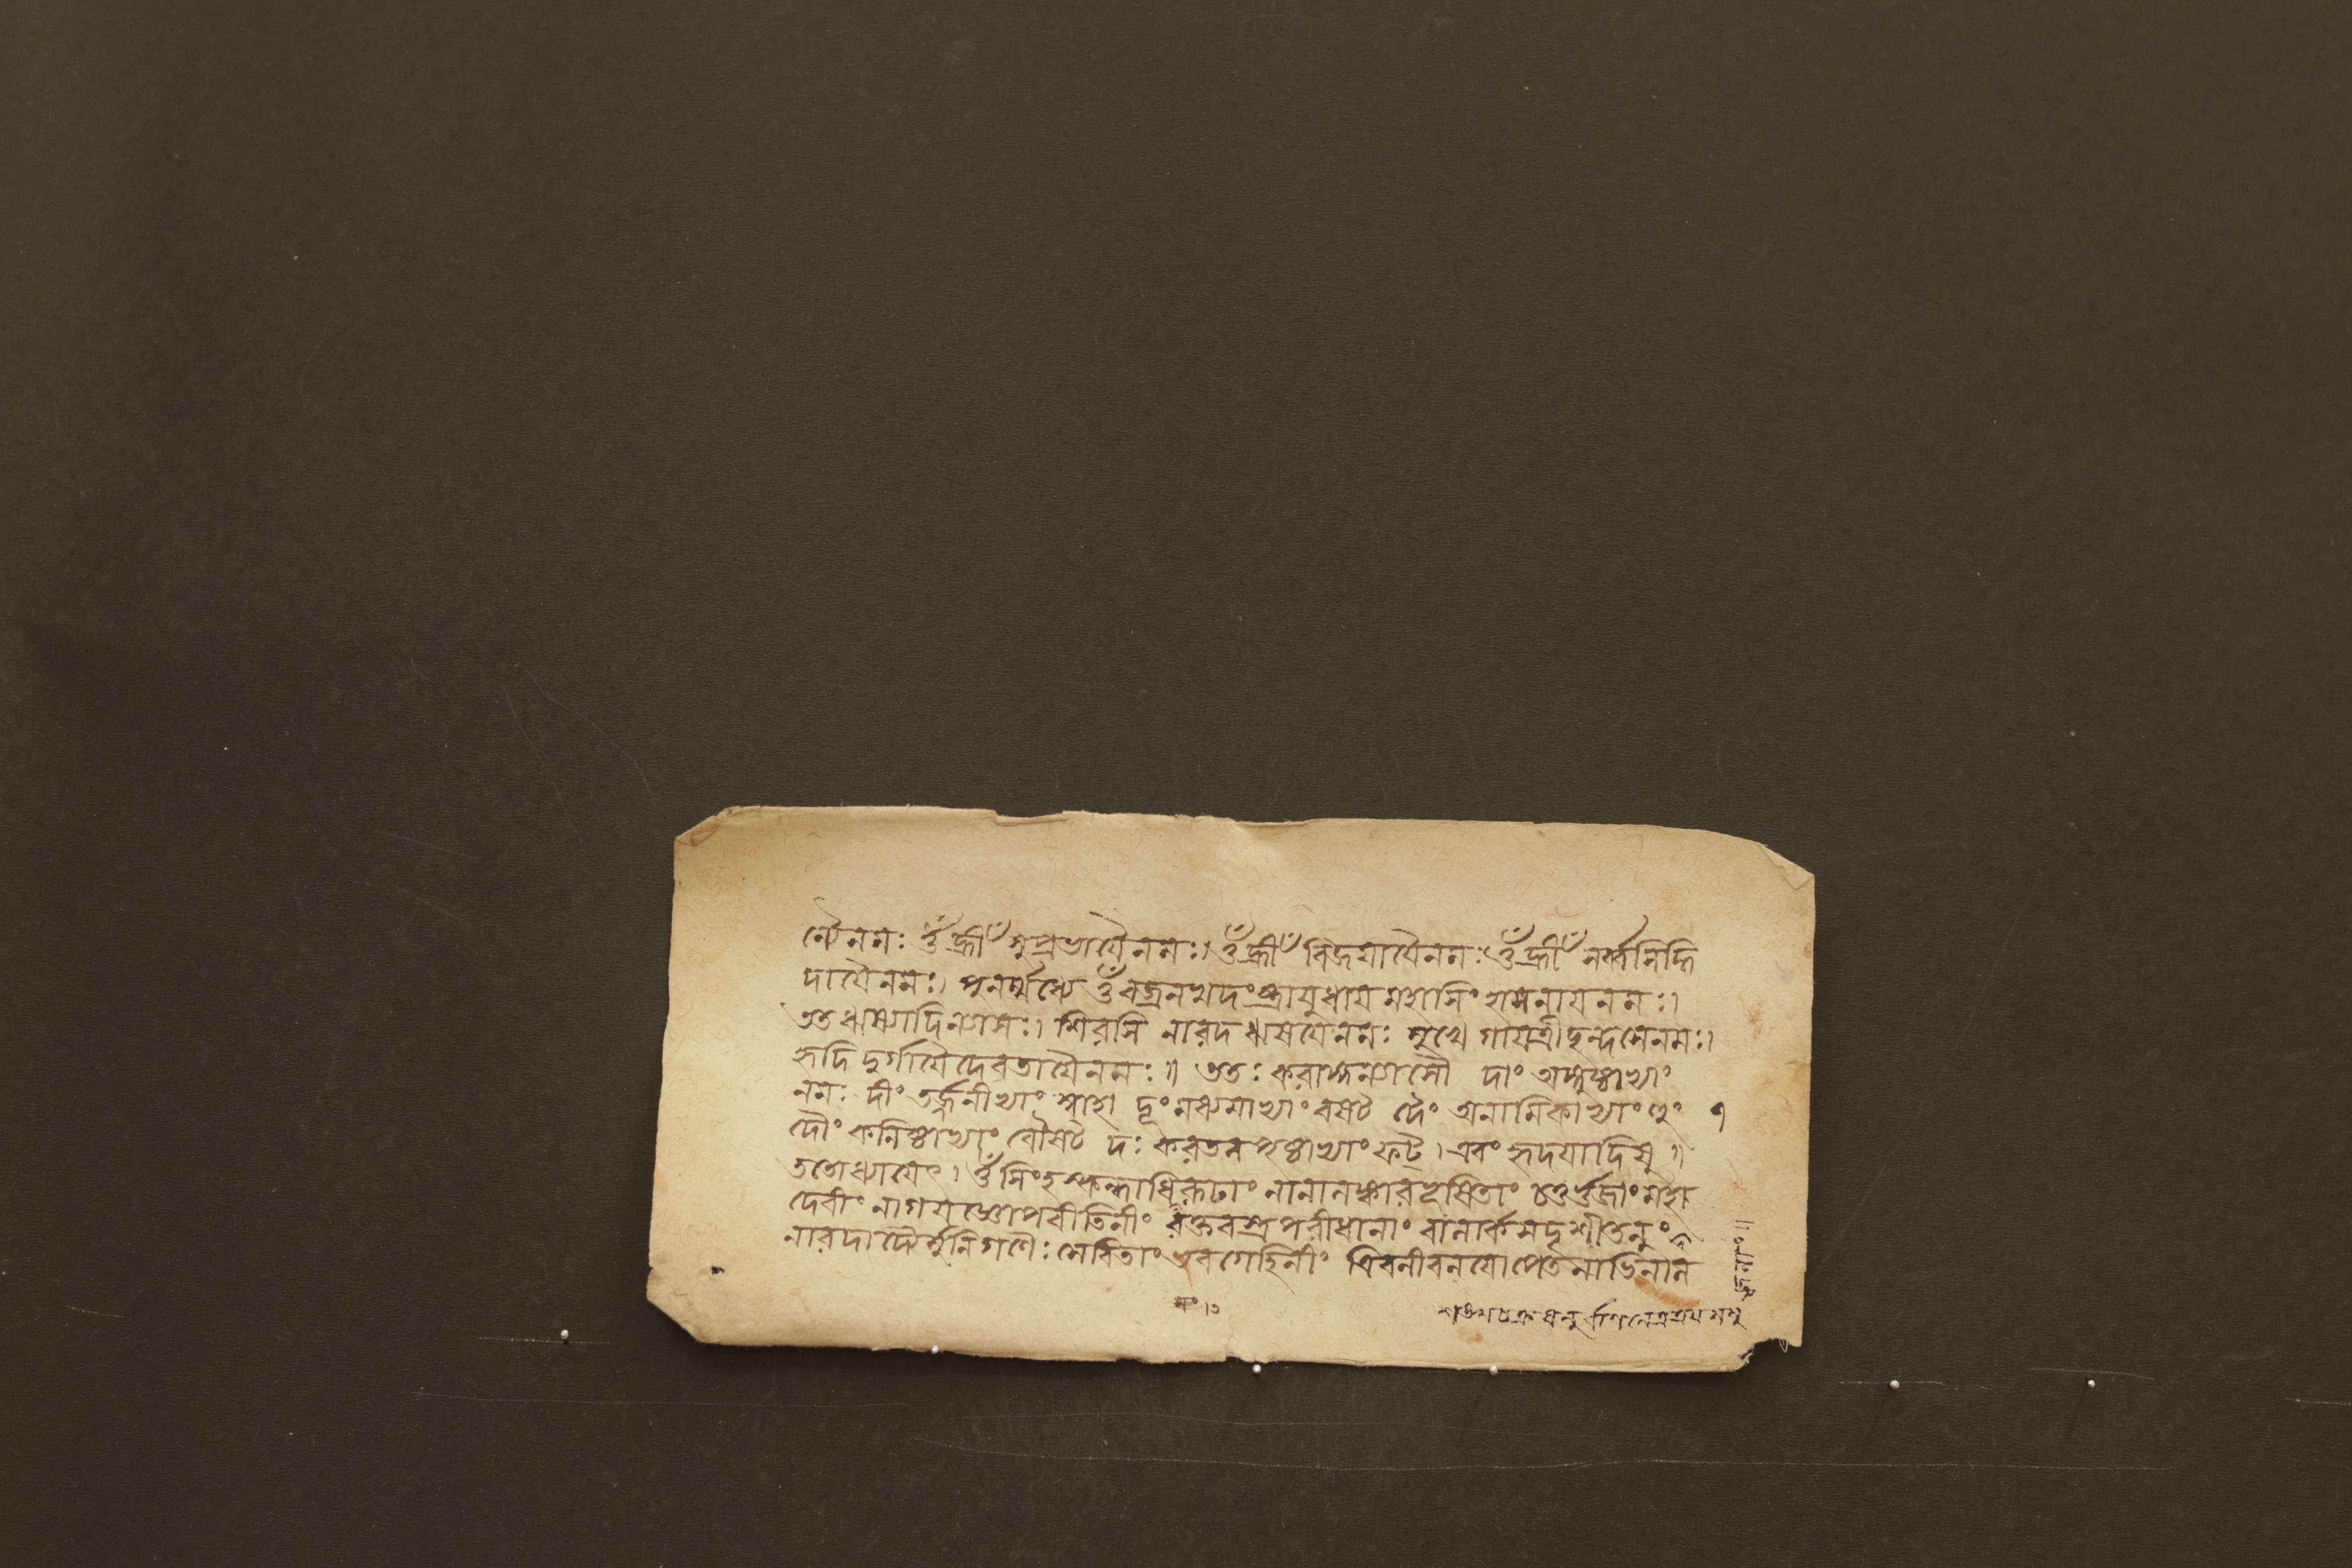 ন্যৈনমঃ ওঁ হ্রীঁ সুপ্রভায়ৈনমঃ। ওঁ হ্রীঁ বিজয়ায়ৈনমঃ ওঁ হ্রীঁ সর্ব্বসিদ্ধি
দায়ৈনমঃ। পুনর্ম্মধ্যে ওঁ বজ্রনখদংষ্ট্রায়ুধায় মহাসিংহাসনায়নমঃ।
তত ঋষ্যাদিন্যাসঃ। শিরসি নারদ ঋষয়েনমঃ মুখে গায়ত্রীছন্দসেনমঃ।
হৃদি দুর্গায়ৈদেবতায়ৈনমঃ॥ ততঃ করাঙ্গন্যাসৌ দাং অঙ্গুষ্ঠাভ্যাং
নমঃ দীং তর্জ্জনীভ্যাং স্বাহা দূং মধ্যমাভ্যাং বষট দৈং অনামিকাভ্যাং হুং
দৌং কনিষ্ঠাভ্যাং বৌষট দঃ করতলপৃষ্ঠাভ্যাং ফট্। এবং হৃদয়াদিষু॥
ততোধ্যায়েৎ। ওঁ সিংহস্কন্ধাধিরূঢাং নানালঙ্কারভূষিতাং চতুর্ভুজাং মহা
দেবীং নাগযজ্ঞোপবীতিনীং রক্তবস্ত্রপরীধানাং বালার্কসদৃশীতনুং
নারদাদ্যৈর্মুনিগণৈঃ সেবিতাং ভবগেহিনীং ত্রিবলীবলয়োপেতনাভিনাল